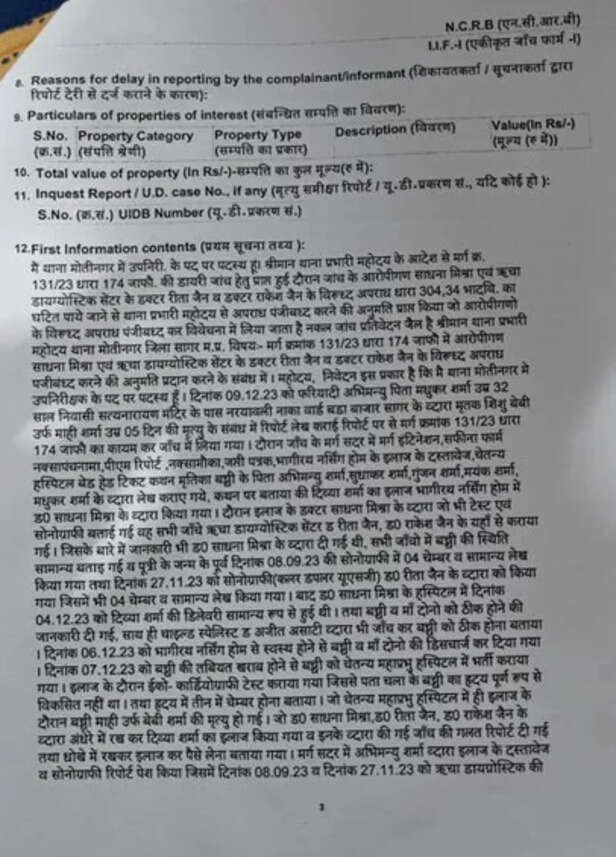 N.C.R.B (एन.सी.आर.बी)
I.I.F.-I (एकीकृत जाँच फार्म -I)
8. Reasons for delay in reporting by the complainant/informant (शिकायतकर्ता / सूचनाकर्ता द्वारा
रिपोर्ट देरी से दर्ज कराने के कारण):
9. Particulars of properties of interest (संबन्धित सम्पति का विवरण):
S.No. Property Category Property Type Description (विवरण) Value(In Rs/-)
(क्र.सं.) (संपत्ति श्रेणी) (सम्पति का प्रकार) (मूल्य (रु में))
10. Total value of property (In Rs/-)-सम्पति का कुल मूल्य(रु में):
11. Inquest Report / U.D. case No., if any (मृत्यु समीक्षा रिपोर्ट / यू.डी.प्रकरण सं., यदि कोई हो ):
S.No. (क्र.सं.) UIDB Number (यू.डी.प्रकरण सं.)
12.First Information contents (प्रथम सूचना तथ्य ):
मै थाना मोतीनगर में उपनिरी. के पद पर पदस्थ हू। श्रीमान थाना प्रभारी महोदय के आदेश से मर्ग क्र.
131/23 धारा 174 जाफौ. की डायरी जांच हेतु प्राप्त हुई दौरान जांच के आरोपीगण साधना मिश्रा एवं ऋचा
डायग्योस्टिक सेंटर के डक्टर रीता जैन व डक्टर राकेश जैन के विरूध्द अपराध धारा 304,34 भादवि. का
घटित पाये जाने से थाना प्रभारी महोदय से अपराध पंजीबध्द करने की अनुमति प्राप्त किया जो आरोपीगणो
के विरूध्द अपराध पंजीबध्द कर विवेचना में लिया जाता है नकल जांच प्रतिवेदन जैल है श्रीमान थाना प्रभारी
महोदय थाना मोतीनगर जिला सागर म.प्र. विषय:- मर्ग क्रमांक 131/23 धारा 174 जाफौ में आरोपीगण
साधना मिश्रा एवं ऋचा डायग्योस्टिक सेंटर के डक्टर रीता जैन व डक्टर राकेश जैन के विरूध्द अपराध
पंजीबध्द करने की अनुमति प्रदान करने के संबंध में । महोदय, निवेदन इस प्रकार है कि मै थाना मोतीनगर मे
उपनिरीक्षक के पद पर पदस्थ हूँ । दिनांक 09.12.23 को फरियादी अभिमन्यु पिता मधुकर शर्मा उम्र 32
साल निवासी सत्यनारायण मंदिर के पास नरयावली नाका वार्ड बडा बाजार सागर के व्दारा मृतक शिशु बेबी
उर्फ माही शर्मा उम्र 05 दिन की मृत्यु के संबंध में रिपोर्ट लेख कराई रिपोर्ट पर से मर्ग क्रमांक 131/23 धारा
174 जाफौ का कायम कर जाँच में लिया गया । दौरान जाँच के मर्ग सदर में मर्ग इंटिनेशन,सफीना फार्म
नक्सापंचनामा,पीएम रिपोर्ट ,नक्सामौका,जप्ती पत्रक,भागीरथ नर्सिंग होम के इलाज के दस्तावेज,चेतन्य
हस्पिटल बेड हेड टिकट कथन मृतिका बच्ची के पिता अभिमन्यु शर्मा,सुधाकर शर्मा,गुंजन शर्मा,मयंक शर्मा,
मधुकर शर्मा के व्दारा लेख कराए गये. कथन पर बताया की दिव्या शर्मा का इलाज भागीरथ नर्सिंग होम में
ड0 साधना मिश्रा के व्दारा किया गया । दौरान इलाज के डक्टर साधना मिश्रा के व्दारा जो भी टेस्ट एवं
सोनोग्राफी बताई गई वह सभी जाँचे ऋचा डायग्योस्टिक सेंटर ड रीता जैन, ड0 राकेश जैन के यहाँ से कराया
गई । जिसके बारे में जानकारी भी ड0 साधना मिश्रा के व्दारा दी गई थी, सभी जाँचो में बच्ची की स्थिति
सामान्य बताइ गई व पूत्री के जन्म के पूर्व दिनांक 08.09.23 की सोनोग्राफी में 04 चेम्बर व सामान्य लेख
किया गया तथा दिनांक 27.11.23 को सोनोग्राफी(कलर डपलर यूएसजी) ड0 रीता जैन के व्दारा को किया
गया जिसमें भी 04 चेम्बर व सामान्य लेख किया गया । बाद ड0 साधना मिश्रा के हस्पिटल में दिनांक
04.12.23 को दिव्या शर्मा की डिलेवरी सामान्य रूप से हुई थी । तथा बच्ची व माँ दोनो को ठीक होने की
जानकारी दी गई, साथ ही चाइल्ड स्पेलिस्ट ड अजीत असाटी व्दारा भी जाँच कर बच्ची को ठीक होना बताया
। दिनांक 06.12.23 को भागीरथ नर्सिंग होम से स्वस्थ होने से बच्ची व माँ दोनो की डिसचार्ज कर दिया गया
। दिनांक 07.12.23 को बच्ची की तबियत खराब होने से बच्ची को चेतन्य महाप्रभु हस्पिटल में भर्ती कराया
गया । इलाज के दौरान ईको- कार्डियोग्राफी टेस्ट कराया गया जिससे पता चला के बच्ची का ह्रदय पूर्ण रूप से
विकसित नहीं था । तथा ह्रदय में तीन में चेम्बर होना बताया । जो चेतन्य महाप्रभु हस्पिटल में ही इलाज के
दौरान बच्ची माही उर्फ बेबी शर्मा की मृत्यु हो गई । जो ड0 साधना मिश्रा,ड0 रीता जैन, ड0 राकेश जैन के
व्दारा अंधेरे में रख कर दिव्या शर्मा का इलाज किया गया व इनके व्दारा की गई जाँच की गलत रिपोर्ट दी गई
तथा धोखे में रखकर इलाज कर पैसे लेना बताया गया । मर्ग सदर में अभिमन्यु शर्मा व्दारा इलाज के दस्तावेज
व सोनोग्राफी रिपोर्ट पेश किया जिसमें दिनांक 08.09.23 व दिनांक 27.11.23 को ऋचा डायग्रोस्टिक की
3